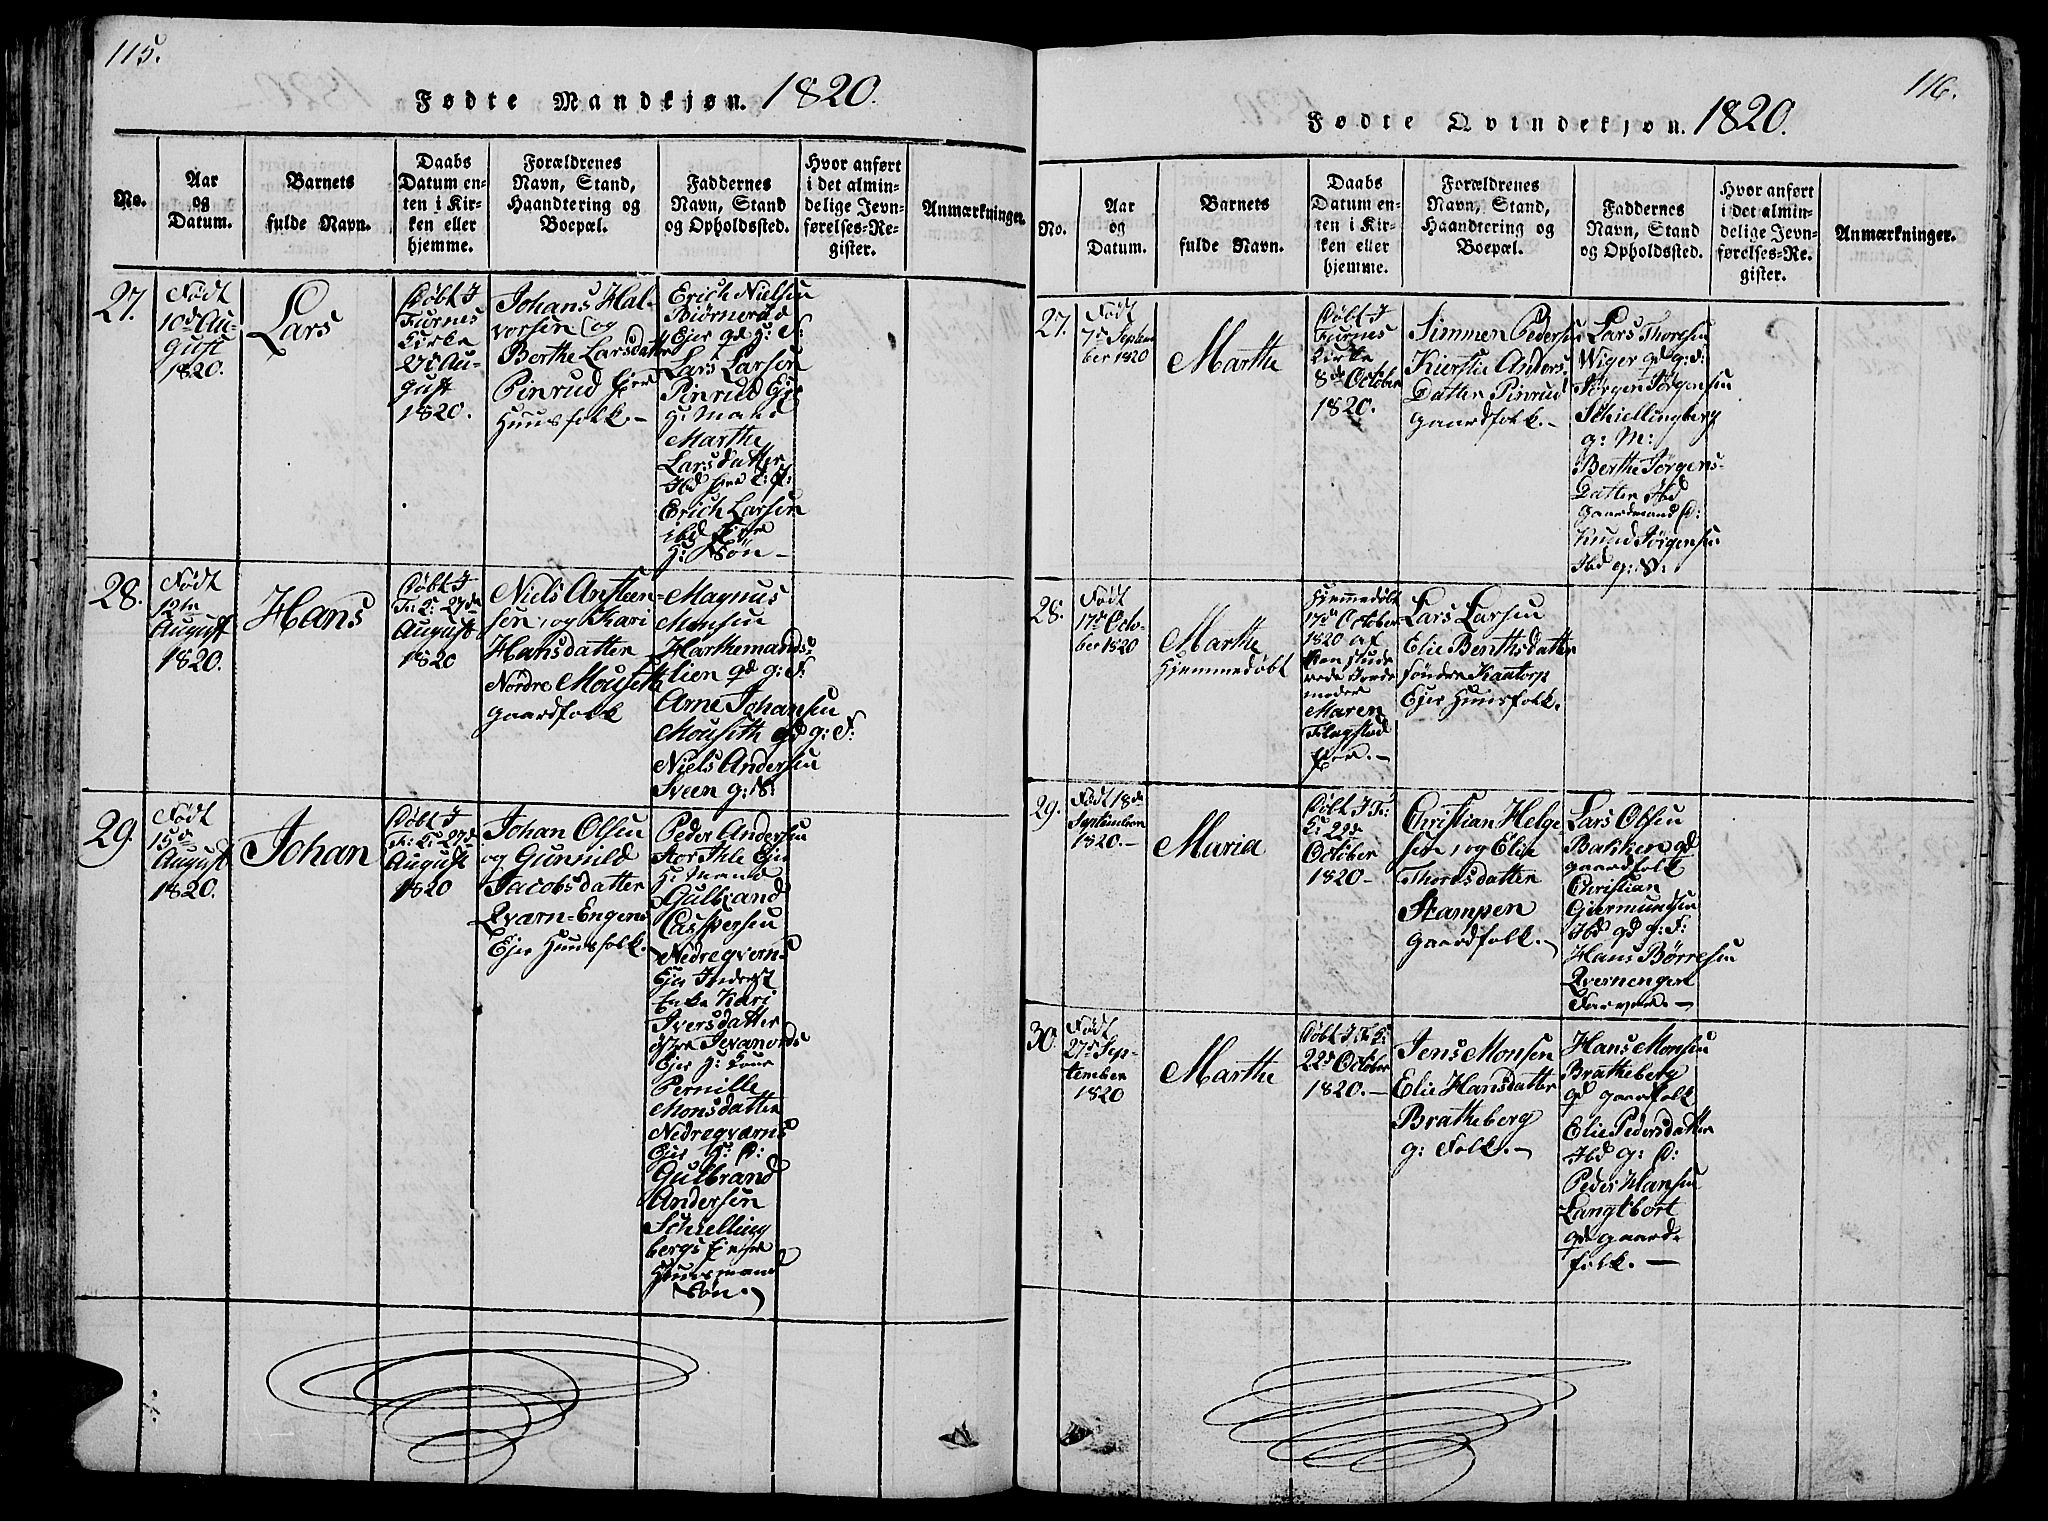 115.
Fødte Mandkjøn. 1820.
No.
Aar
og
Datum.
Barnets
fulde Navn.
Daabs
Datum en-
ten i Kir-
ken eller
hjemme.
Forældrenes
Navn, Stand,
Haandtering og
Boepæl.
Faddernes
Navn, Stand
og Opholdssted.
Hvor anført
i det almin-
delige Jevn-
førelses-Re-
gister.
Anmærkninger.
27.
Født
10de Au-
gust
1820.
Lars
Døbt I
Furnes
Kirke
27de Au-
gust
1820.
Johans Hal-
vorsen og
Berthe Larsdatter
Pinrud Ejer
Huusfolk.-
Erich Nielsen
Biørnerud
Ejer gd H: F:
Lars Larsen
Pinrud Eje
H: Mand
Marthe
Larsdatter
Ibd
Erich Larsen
ibd Ejer
H: Søn-
28.
Født
12te
August
1820.
Hans
Døbt I
F: K: 27de
August
1820
Niels Arntsen-
sen, og Kari
Hansdatter
Nordre Mouseth
gaardfolk
Magnus
Monsen
Harthemands-
lien gd g: F:
Arne Johansen
Mouseth gd g: F:
Niels Andersen
Sveen g: S:
29.
Født
15de
August
1820.
Johan
Døbt I
F: K: 27de
August
1820
Johan Olsen
og Gunnild
Jacobsdatter
Qværn-Engens
Ejer Huusfolk.
Peder Andersen
Stor Ihle Eje
H: Mand
Gulbrand
Caspersen
Nedreqverns
Eje Inderst
Enke Kari
Iversdatter
Jevanords
Eje H: Kone
Pernille
Monsdatter
Nedreqværns
Ejer H: P:
Gulbrand
Andersen
Schielling
bergs Ejer
Huusmand
Søn.
116.
Fødte Qvindekjøn. 1820.
No.
Aar
og
Datum.
Barnets
fulde Navn.
Daabs
Datum en-
ten i Kir-
ken eller
hjemme.
Forældrenes
Navn, Stand,
Haandtering og
Boepæl.
Faddernes
Navn, Stand
og Opholdssted.
Hvor anført
i det almin-
delige Jevn-
førelses-Re-
gister.
Anmærkninger.
27.
Født
7de Septem
ber 1820
Marthe
Døbt I
Furnes
Kirke
8de October
1820.
Simmen Pedersen
Kierstie Anders
Datter Pinrud
gaardfolk.-
Lars Thoresen
Wiger gd g: F:
Jørgen Jørgensen
Schiellingberg
g: M:
Berthe Jørgens-
Datter Ibd
Gaardmand P:
Knud Jørgensen
Ibd g: S:
28.
Født
17de Octo-
ber 1820
Marthe
Hjemmedøbt
Hjemmedøbt
17de October
1820 af
Exn stude
rede Jorde
moder
Maren
Flagstad
Ejer.-
Lars Larsen
Elie Benthsdatter
søndre Kantorp
Ejer Huusfolk.
29.
Født 18de
September
1820.-
Maria
Døbt I F:
K: 22de
October
1820-
Christian Helge
sen, og Elie
Thoresdatter
Stampen
gaardfolk.
Lars Olsen
Bakken gd
gaardfolk
Christian
Giermundsen
Ibd gd g: F:
Hans Børresen
Qvernengen
Farver.-
30.
Født
27de Sep-
tember
1820
Marthe
Døbt I F: K:
22de October
1820.-
Jens Monsen
Elie Hansdatter
Bratheberg
g: Folk.-
Hans Monsen
Bratheberg
gd gaardfolk
Elie Pedersdatter
Ibd g: P:
Peder Hansen
Langtbort
gde gaard-
folk.-